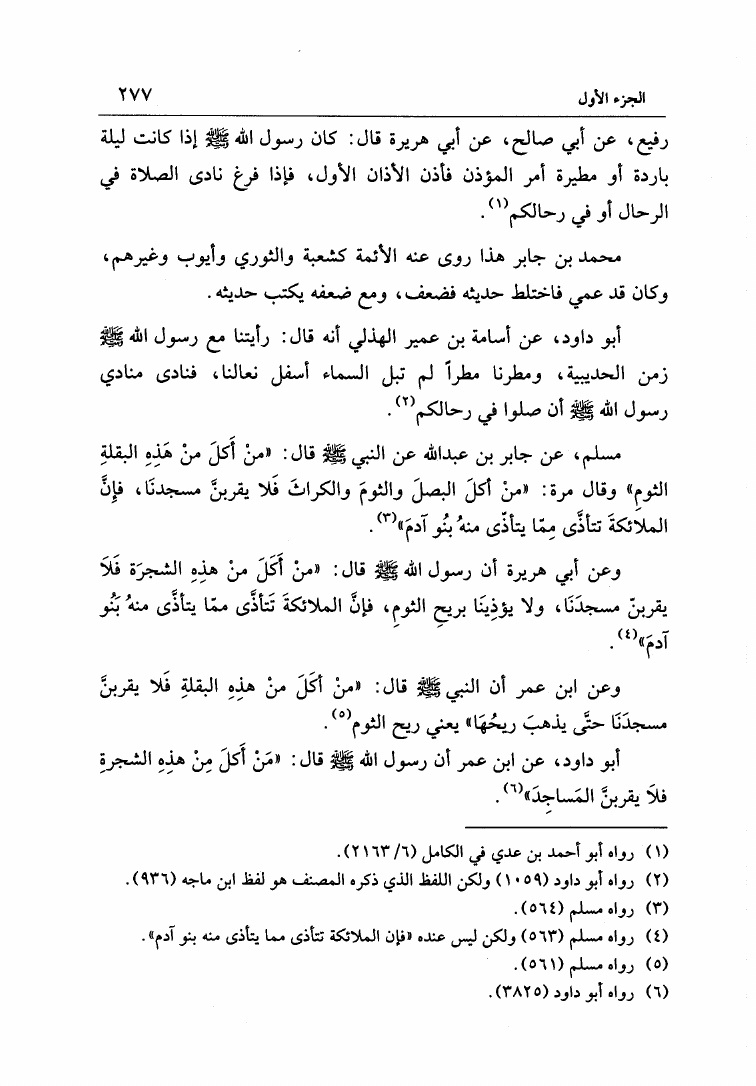 الجزء الأول ٢٧٧
رفيع، عن أبي صالح، عن أبي هريرة قال: كان رسول الله ﷺ إذا كانت ليلة
باردة أو مطيرة أمر المؤذن فأذن الأذان الأول، فإذا فرغ نادى الصلاة في
الرحال أو في رحالكم(١).
محمد بن جابر هذا روى عنه الأئمة كشعبة والثوري وأيوب وغيرهم،
وكان قد عمي فاختلط حديثه فضعف، ومع ضعفه يكتب حديثه.
أبو داود، عن أسامة بن عمير الهذلي أنه قال: رأيتنا مع رسول الله ﷺ
زمن الحديبية، ومطرنا مطراً لم تبل السماء أسفل نعالنا، فنادى منادي
رسول الله ﷺ أن صلوا في رحالكم(٢).
مسلم، عن جابر بن عبدالله عن النبي ﷺ قال: «منْ أَكلَ منْ هَذِهِ البقلةِ
الثومِ» وقال مرة: «منْ أكلَ البصلَ والثومَ والكراثَ فَلا يقربنَّ مسجدنَا، فإِنَّ
الملائكةَ تتأذَّى مِمّا يتأذّى منهُ بنُو آدمَ»(٣).
وعن أبي هريرة أن رسول الله ﷺ قال: «منْ أَكَلَ منْ هذِهِ الشجرَة فَلَا
يقربنّ مسجدَنَا، ولا يؤذِينَا بريحِ الثومِ، فإنَّ الملائكةَ تَتأذَّى ممّا يتأذَّى منهُ بَنُو
آدمَ»(٤).
وعن ابن عمر أن النبي ﷺ قال: «منْ أكَلَ منْ هذِهِ البقلةِ فَلا يقربنَّ
مسجدَنَا حتَّى يذهبَ ريحُهَا» يعني ريح الثوم(٥).
أبو داود، عن ابن عمر أن رسول الله ﷺ قال: «مَنْ أكلَ مِنْ هذِهِ الشجرةِ
فلاَ يقربنَّ المَساجِدَ»(٦).
(١) رواه أبو أحمد بن عدي في الكامل (٦/ ٢١٦٣).
(٢) رواه أبو داود (١٠٥٩) ولكن اللفظ الذي ذكره المصنف هو لفظ ابن ماجه (٩٣٦).
(٣) رواه مسلم (٥٦٤).
(٤) رواه مسلم (٥٦٣) ولكن ليس عنده «فإن الملائكة تتأذى مما يتأذى منه بنو آدم».
(٥) رواه مسلم (٥٦١).
(٦) رواه أبو داود (٣٨٢٥).